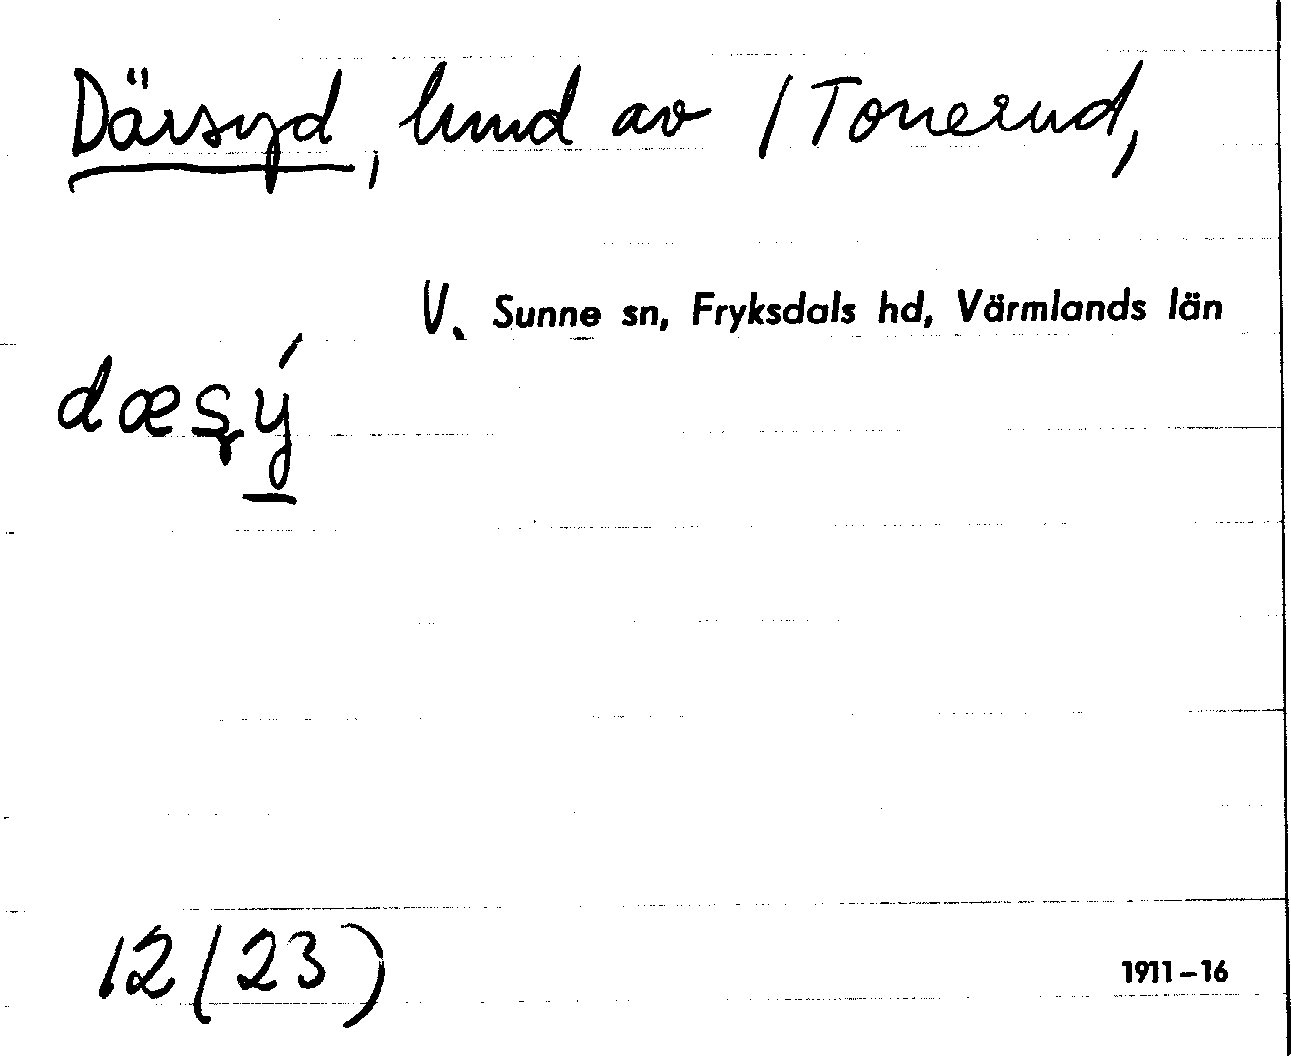 Därsyd, lund av / Tonerud,
V. Sunne sn, Fryksdals hd, Värmlands län
dæʂý
12(23)
1911–16